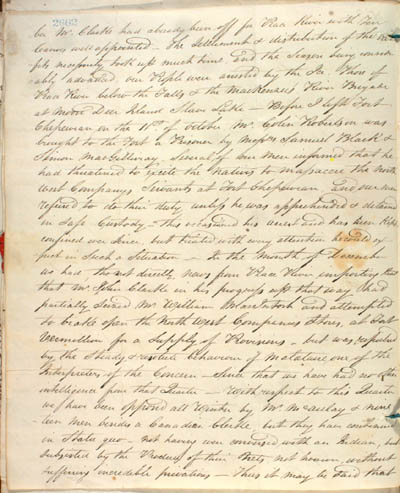 2662
be Mr. Clarke had already been off for Peace River with Five
Canoes well appointed – the Settlement & distribution of the
necessarily took up much time, and the Season being consider-
ably advanced, our People were arrested by the Ice. Those of
Peace River below the Falls & the MacKenzies River Brigade
at Moose Deer Island Slave Lake – Before I left Fort
Chepewean on the 11th of October Mr. Colin Robertson was
brought to the Fort a Prisoner by Messrs Samuel Black &
Simon MacGillivray Several of our Men informed that he
had threatened to excite the Natives to massacre the North
West Companys Servants at Fort Chepewean, and our men
refused to do their duty unless he was apprehended & detained
in Safe Custody – this occasioned his arrest and has been kept
confined ever Since, but treated with every attention he could ex-
pect in Such a Situation – In the Month of December
we had tho not directly news from Peace River importing that
that Mr. John Clarke in his progress up that way had
partially Seized Mr. William MacIntosh and attempted
to brake open the North West Companys Stores, at Fort
Vermillion for a Supply of Provisions – but was repulsed
by the Steady & resolute Behaviour of one of the
Interpreters of the Concern – Since that we have had no other
intelligence from that Quarter – With respect to this Quarter
we have been opposed all Winter by Mr. McAulay & nine
-teen men besides a Canadian Clerke – but they have continued
in Statu quo – not having even conversed with an Indian, but
subsisted by the Produce of their Nets not however without
suffering incredible privations – Thus it may be said that